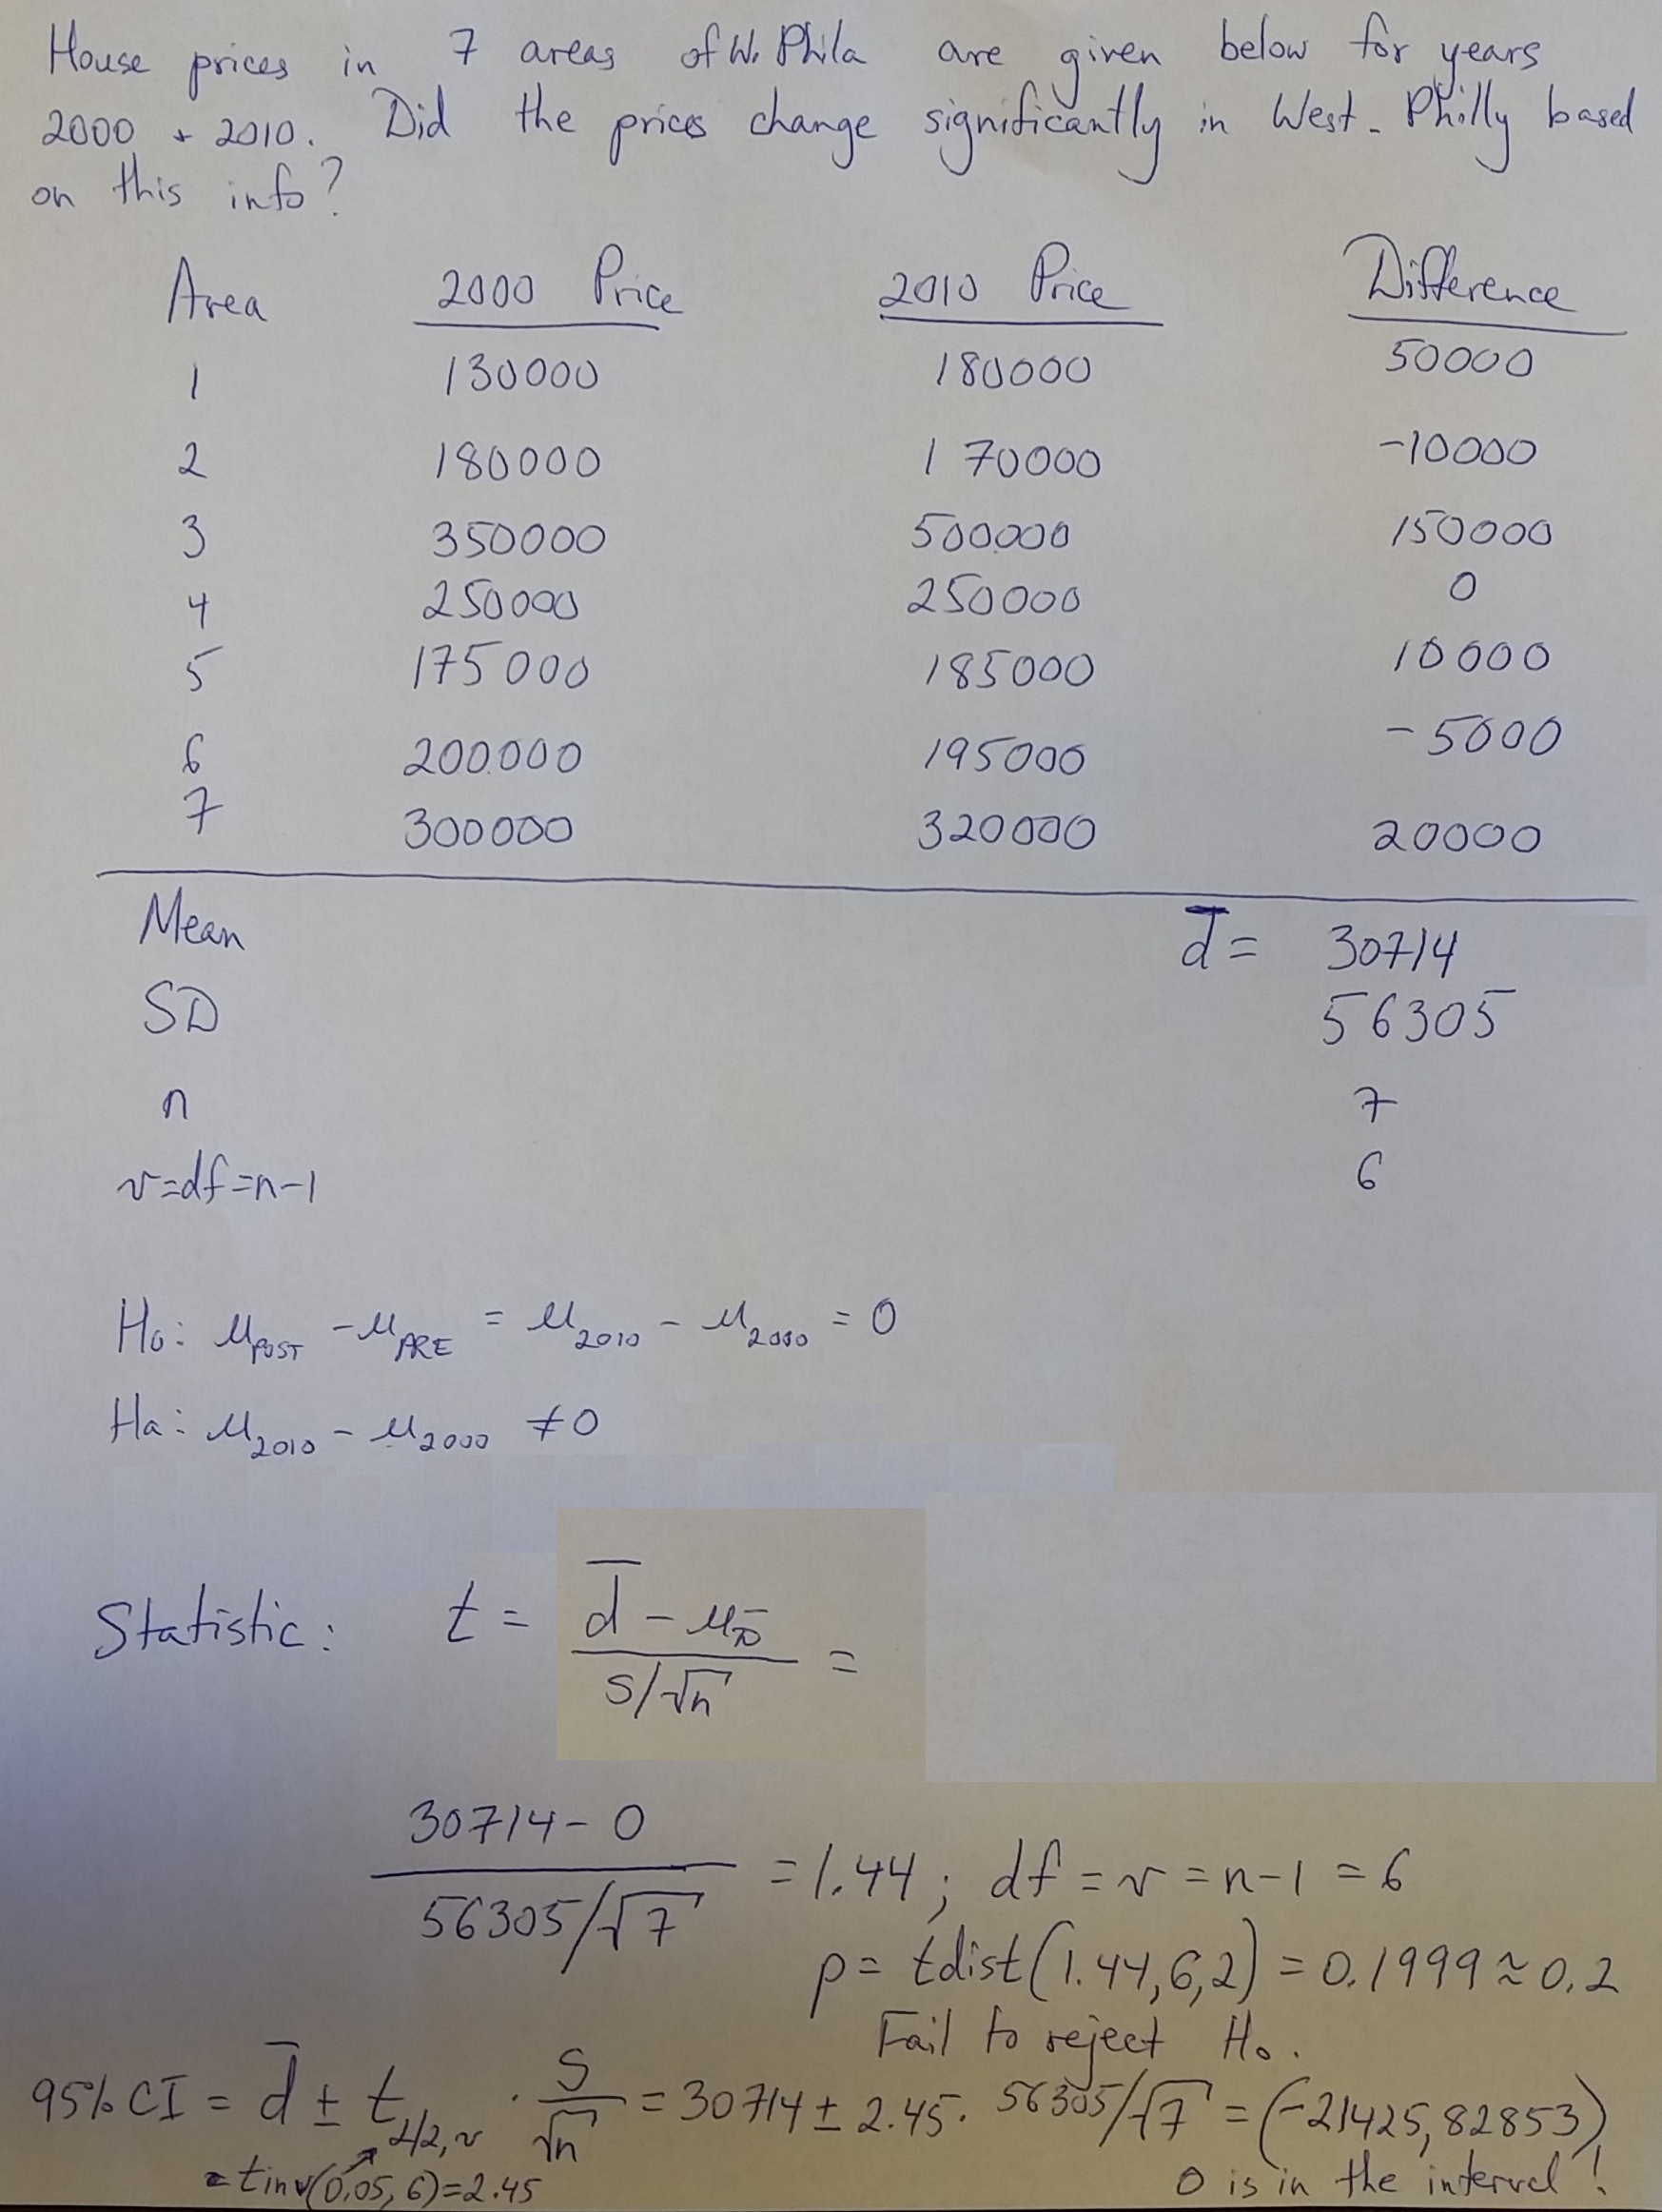 House prices in 7 areas of W. Phila are given below for years
2000 + 2010. Did the prices change significantly in West-Philly based
on this info?
Area 2000 Price 2010 Price Difference
1 130000 180000 50000
2 180000 170000 -10000
3 350000 500000 150000
4 250000 250000 0
5 175000 185000 10000
6 200000 195000 -5000
7 300000 320000 20000
Mean d̄ = 30714
SD 56305
n 7
ν=df=n-1 6
H₀: μ_POST - μ_PRE = μ_2010 - μ_2000 = 0
Ha: μ_2010 - μ_2000 ≠ 0
Statistic: t = (d̄ - μ_D̄)/(S/√n) =
(30714 - 0)/(56305/√7) = 1.44; df = ν = n-1 = 6
p = tdist(1.44,6,2) = 0.1999 ≈ 0.2
Fail to reject H₀.
95% CI = d̄ ± t_α/2,ν · S/√n = 30714 ± 2.45 · 56305/√7 = (-21425, 82853)
= tinv(0.05, 6) = 2.45 0 is in the interval!